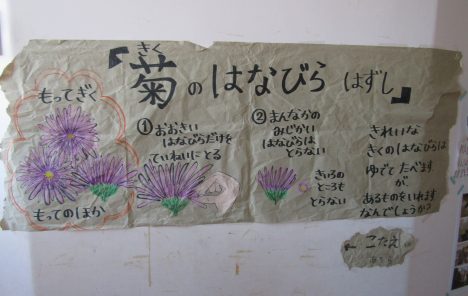 きく
「菊のはなびら はずし」
もってぎく
もってのほか
①おおきい
はなびらだけを
ていねいにとる
②まんなかの
みじかい
はなびらは
とらない
きいろの
ところも
とらない
きれいな
きくのはなびらは
ゆでて たべます
が
あるものをいれます
なんでしょうか?
こたえ